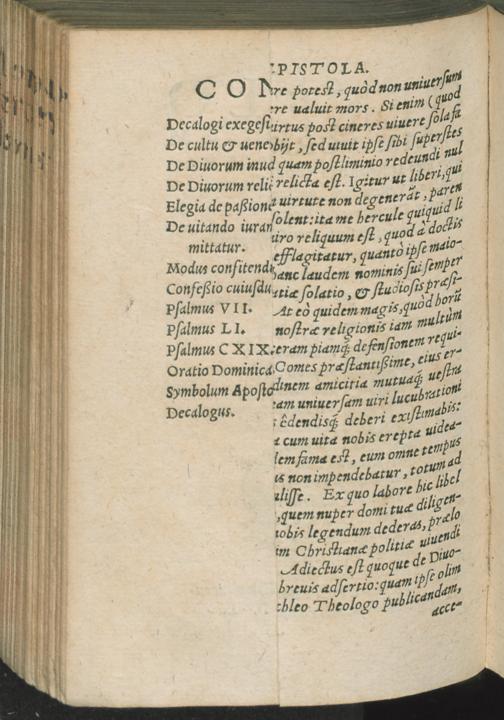 CON
Decalogi exegesi
De cultu & uene
De Diuorum inuo
De Diuorum reli
Elegia de paßione
De uitando iuran
mittatur.
Modus confitendi
Confeßio cuiusdu
Psalmus VII.
Psalmus LI.
Psalmus CXIX.
Oratio Dominica
Symbolum Aposto
Decalogus.
EPISTOLA.
re potest, quòd non uniuersum
re ualuit mors. Si enim (quod
uirtus post cineres uiuere sola sa
obijt, sed uiuit ipse sibi superstes
d quam postliminio redeundi nul
relicta est. Igitur ut liberi, qui
a uirtute non degenerāt, paren
solent: ita me hercule quiquid li
uiro reliquum est, quod à doctis
efflagitatur, quantò ipse maio-
anc laudem nominis sui semper
tiæ solatio, & studiosis præsi-
At eò quidem magis, quòd horū
nostræ religionis iam multùm
eram piamq́; defensionem requi-
Comes præstantißime, eius er-
dinem amicitia mutuaq́; uestra
am uniuersam uiri lucubrationi
êdendisq́; deberi existimabis:
a cum uita nobis erepta uidea-
em fama est, eum omne tempus
s non impendebatur, totum ad
lisse. Ex quo labore hic libel
, quem nuper domi tuæ diligen-
nobis legendum dederas, prælo
m Christianæ politiæ uiuendi
Adiectus est quoque de Diuo-
breuis adsertio: quam ipse olim
chleo Theologo publicandam,
acce-